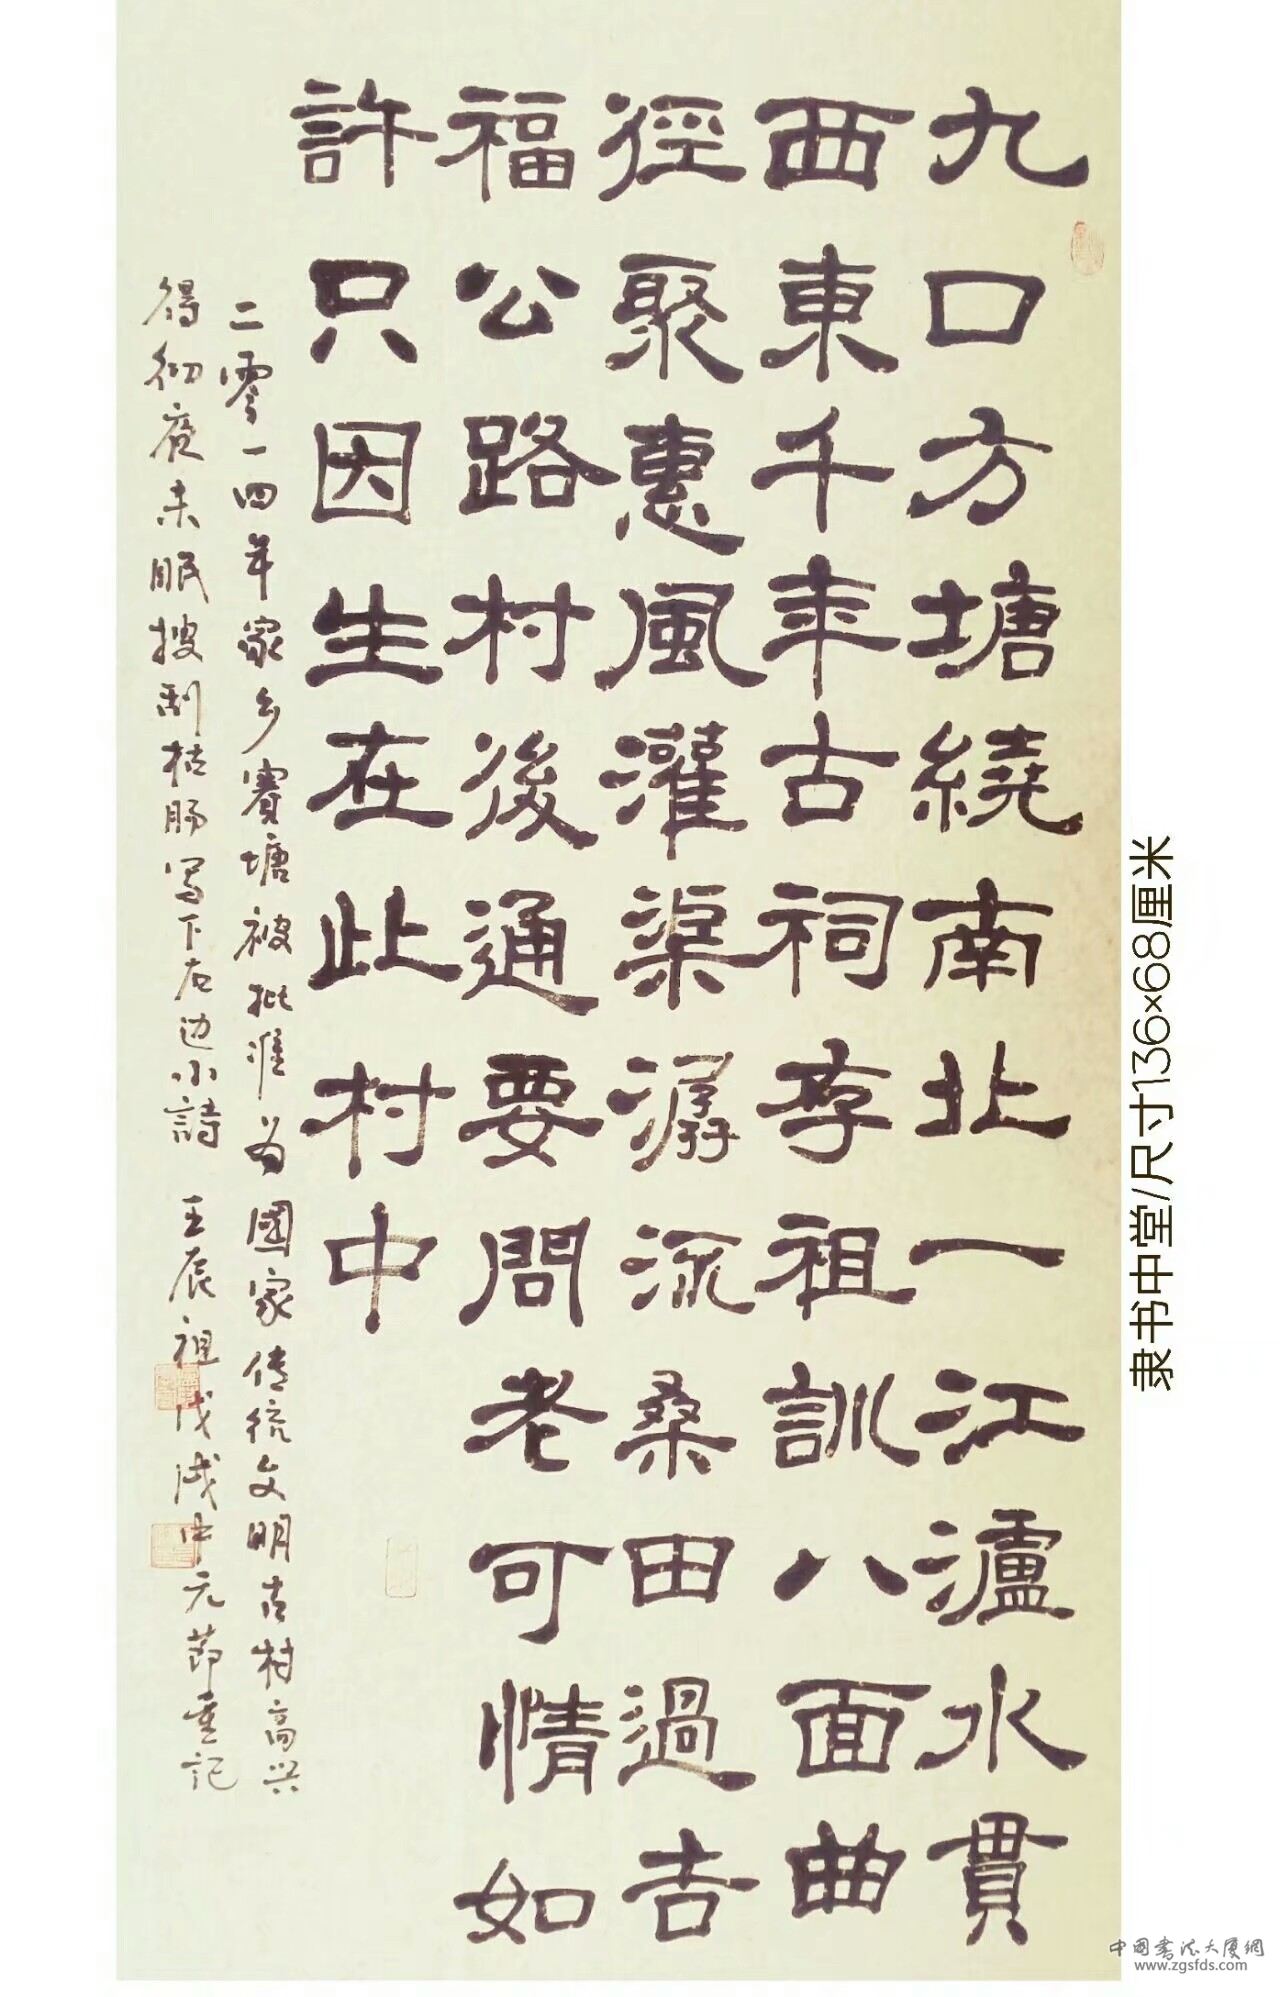 九口方塘繞南北一江瀘水貫
西東千年古祠存祖訓八面曲
徑聚惠風灌渠潺流桑田過吉
福公路村後通要問老可情如
許只因生在此村中
二零一四年家乡賽塘被批准为國家传统文明古村高兴
得彻夜未眠搜刮枯肠写下右边小詩 王辰祖戊戌中元節重记
隶书中堂/尺寸136×68厘米
中國書法大厦網
www.zgsfds.com